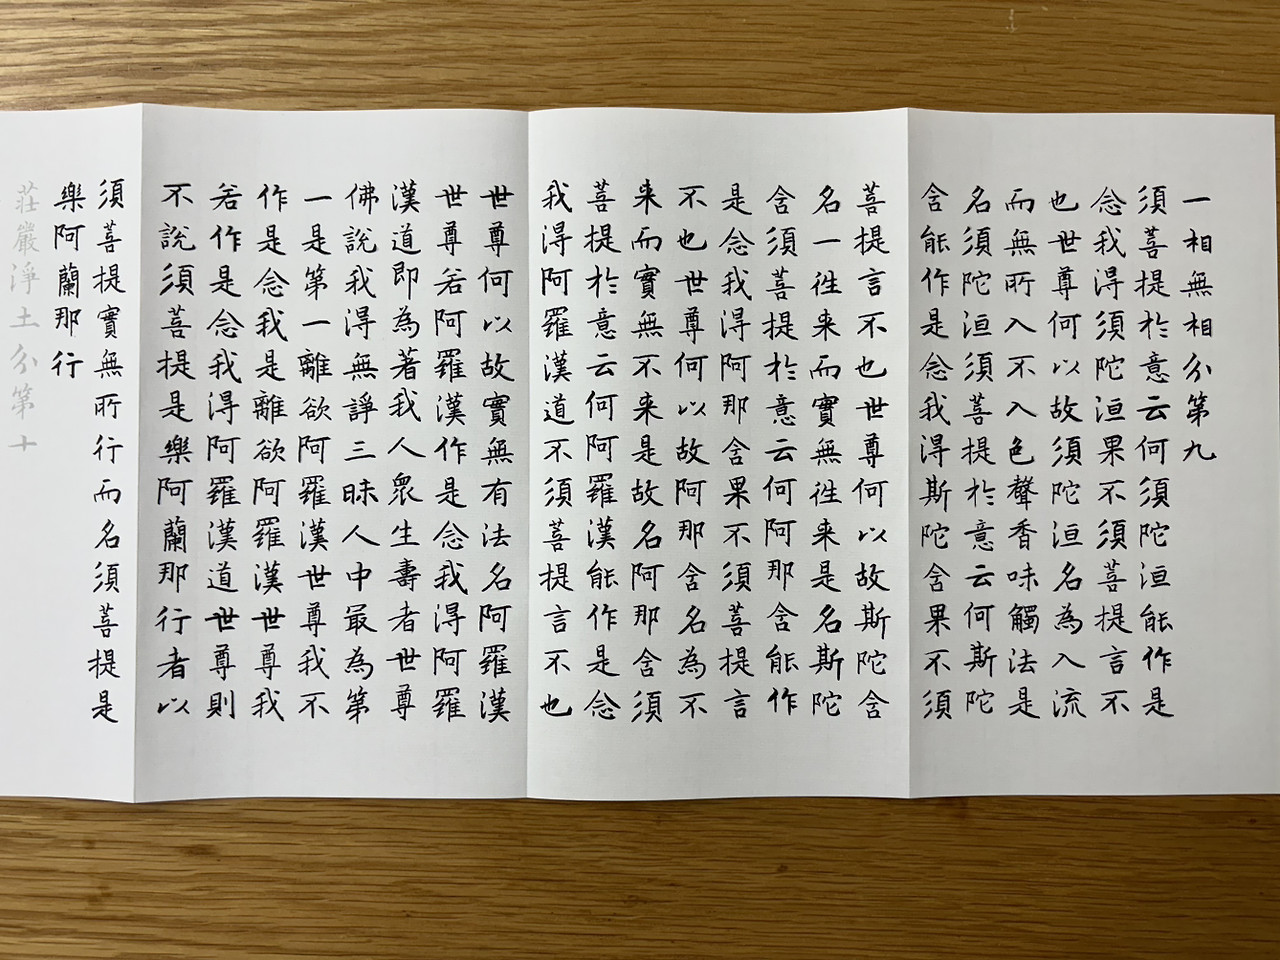 一相無相分第九
須菩提於意云何須陀洹能作是
念我得須陀洹果不須菩提言不
也世尊何以故須陀洹名為入流
而無所入不入色聲香味觸法是
名須陀洹須菩提於意云何斯陀
含能作是念我得斯陀含果不須
菩提言不也世尊何以故斯陀含
名一徃来而實無徃来是名斯陀
含須菩提於意云何阿那含能作
是念我得阿那含果不須菩提言
不也世尊何以故阿那含名為不
来而實無不来是故名阿那含須
菩提於意云何阿羅漢能作是念
我得阿羅漢道不須菩提言不也
世尊何以故實無有法名阿羅漢
世尊若阿羅漢作是念我得阿羅
漢道即為著我人眾生壽者世尊
佛說我得無諍三昧人中最為第
一是第一離欲阿羅漢世尊我不
作是念我是離欲阿羅漢世尊我
若作是念我得阿羅漢道世尊則
不說須菩提是樂阿蘭那行者以
須菩提實無所行而名須菩提是
樂阿蘭那行
莊嚴淨土分第十